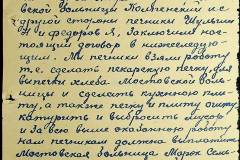 ской Больницы Полянский и с
другой стороны печники Шульгин
и Федоров Я, заключили нас-
тоящий договор в нижеследую-
щим. Мы печники взяли работу
т.е. сделать пекарскую печку для
выпечки хлеба Мостовской Боль-
ницы и сделать кухонную пли-
ту, а также печку и плиту ошту-
катурить и выбросить мусор
и за всю выше указанную работу
нам печникам должна выплатить
Мостовская больница